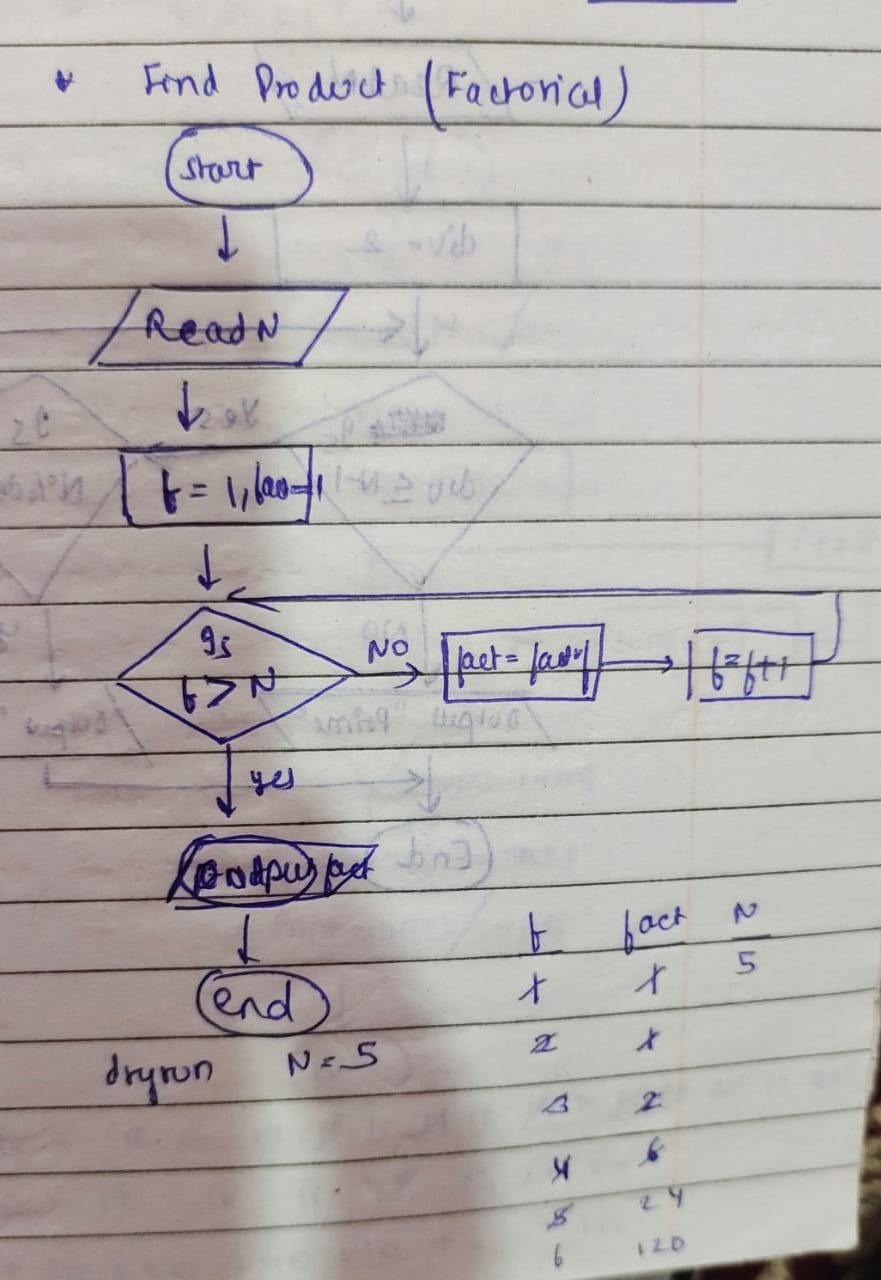 Find Product (Factorial)
Start
Read N
f = 1, fact=1
Is
f > N
NO
fact = fact*f
f=f+1
yes
Output fact
end
dryrun N = 5
f fact N
1 1 5
2 1
3 2
4 6
5 24
6 120